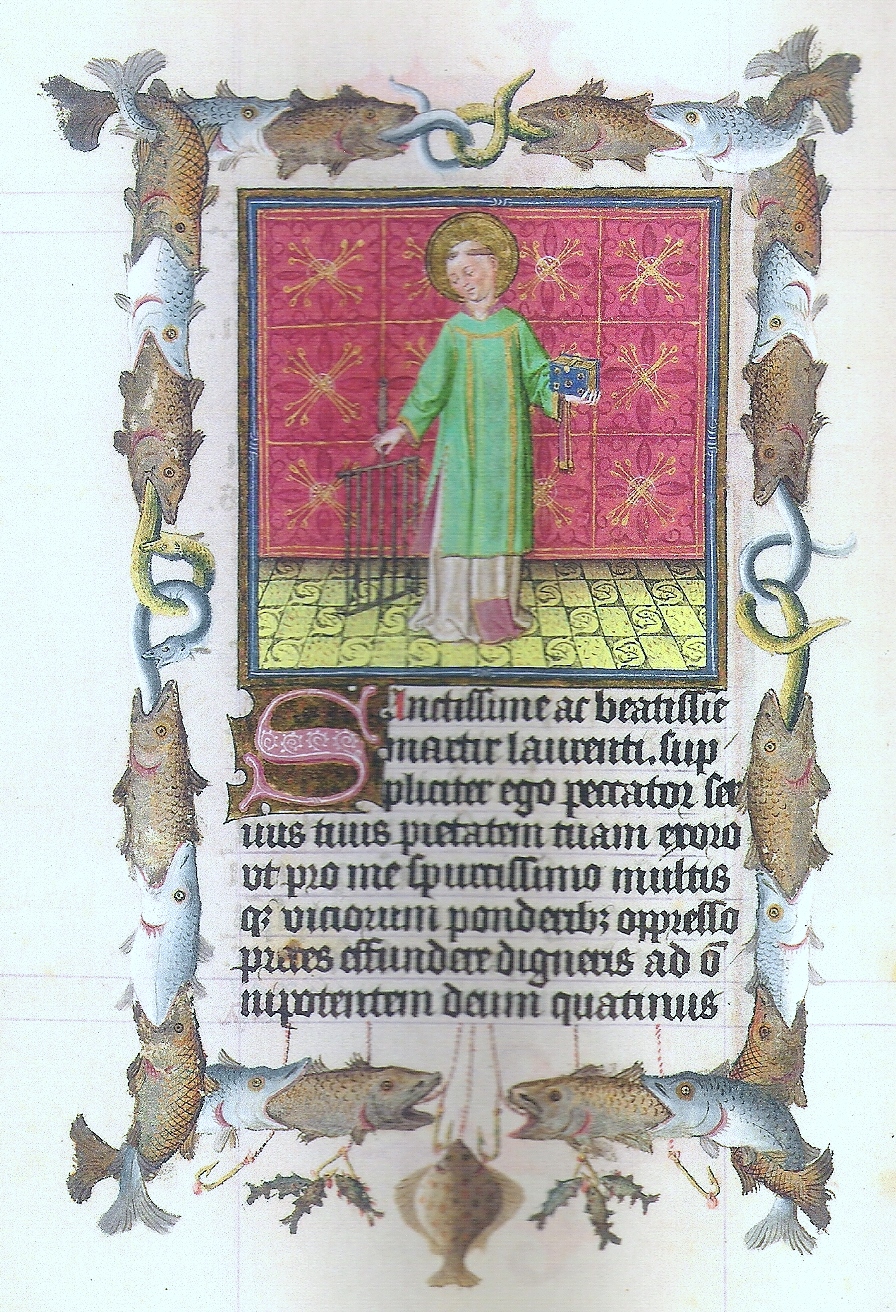 Sanctissime ac beatissie
martir laurenti. sup
pliciter ego peccator ser
uus tuus pietatem tuam exoro
vt pro me spurcissimo multis
qꝫ viciorum ponderibꝫ oppresso
preces effundere digneris ad ō
nipotentem deum quatinus